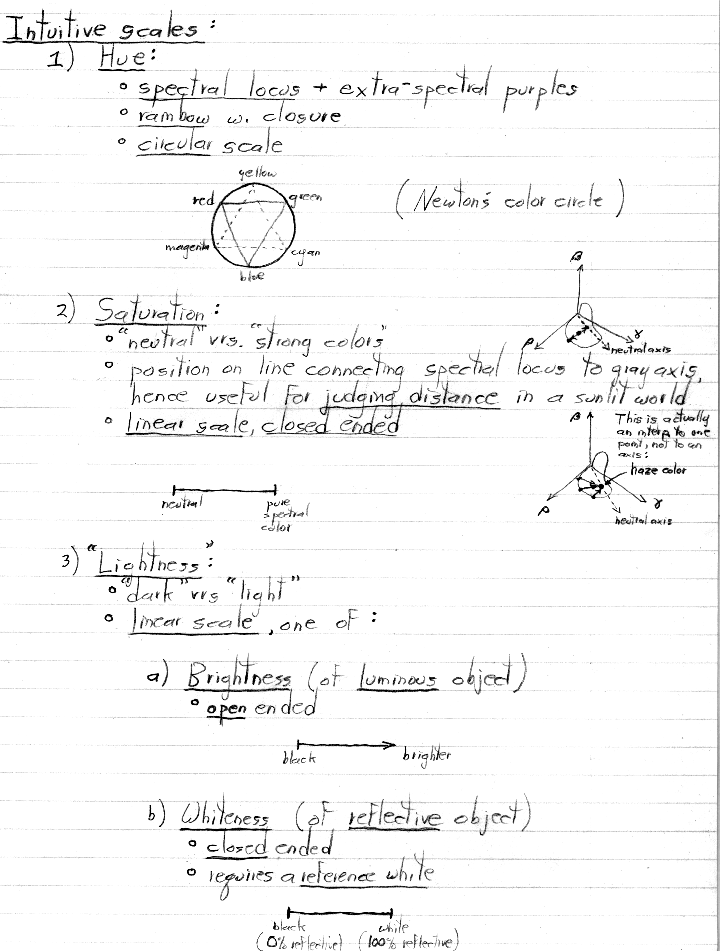 Intuitive scales:
1) Hue:
° spectral locus + extra-spectral purples
° rainbow w. closure
° circular scale
yellow
red
green
magenta
cyan
blue
(Newton's color circle)
2) Saturation:
° "neutral" vrs. "strong colors"
° position on line connecting spectral locus to gray axis,
hence useful for judging distance in a sunlit world
° linear scale, closed ended
β
ρ
γ
neutral axis
This is actually
an interp to one
point, not to an
axis:
β
haze color
ρ
γ
neutral axis
neutral
pure
spectral
color
3) "Lightness":
° "dark" vrs "light"
° linear scale, one of:
a) Brightness (of luminous object)
° open ended
black
brighter
b) Whiteness (of reflective object)
° closed ended
° requires a reference white
black
white
(0% reflective)
(100% reflective)